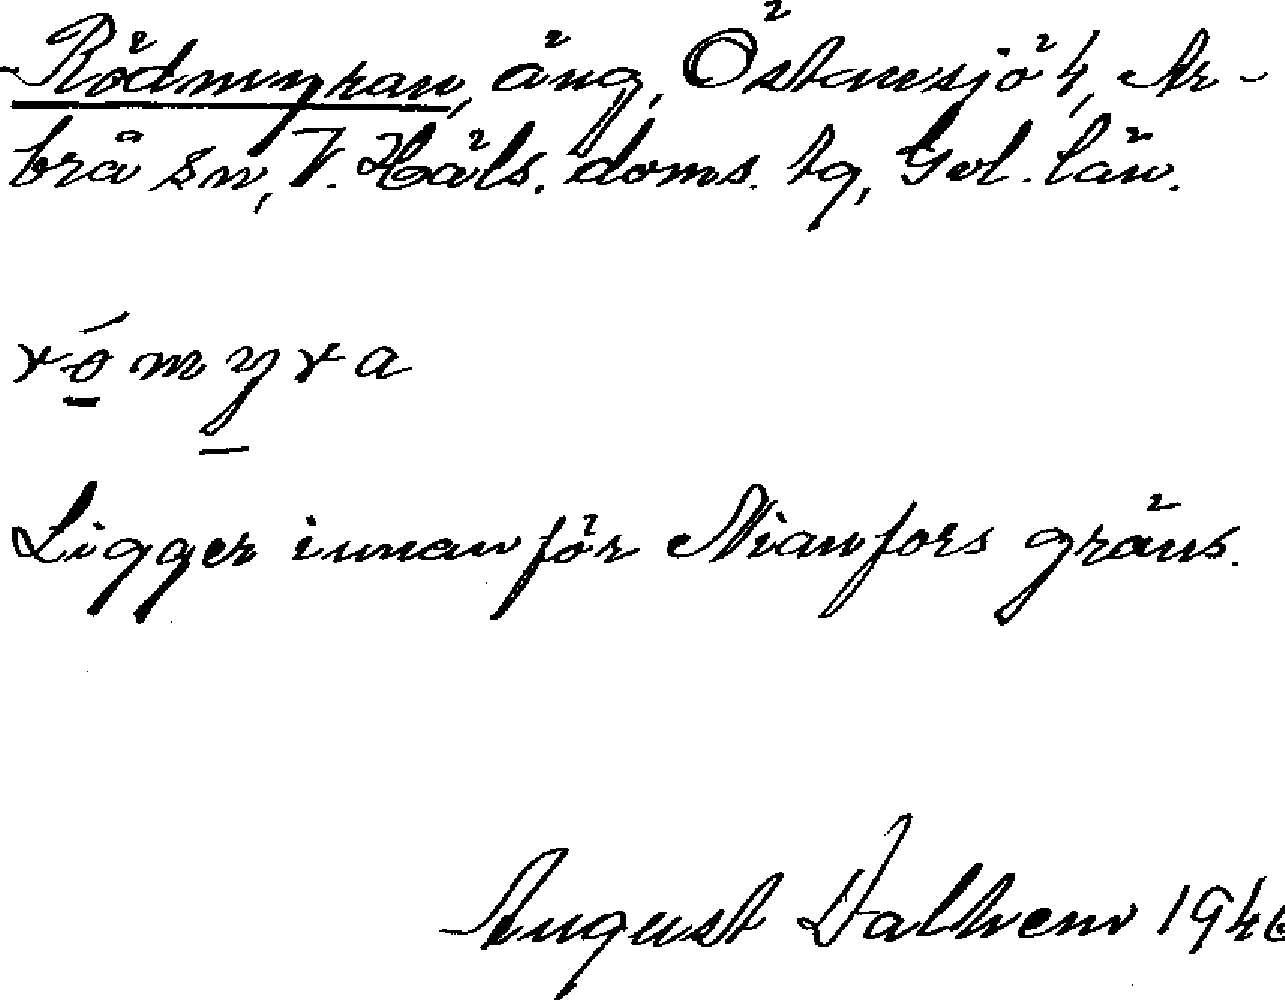 Rödmyran, äng, Östansjö 4, Ar-
brå sn, V. Häls. doms. tg, Gvl. län.
rómyra
Ligger innanför Nianfors gräns.
August Dalhem 1946